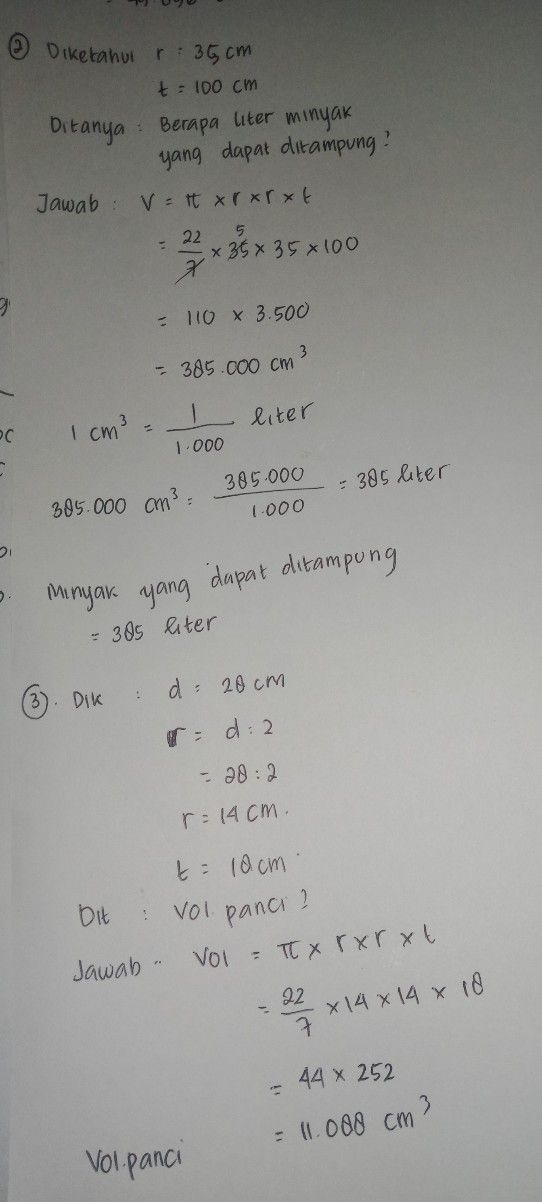 ② Diketahui r : 35 cm
t = 100 cm
Ditanya : Berapa liter minyak
yang dapat ditampung?
Jawab : V = π × r × r × t
= 22/7 × 35 × 35 × 100
5
= 110 × 3.500
= 385.000 cm³
1 cm³ = 1/1.000 liter
385.000 cm³ = 385.000/1.000 = 385 liter
Minyak yang dapat ditampung
= 385 liter
③. Dik : d = 28 cm
r = d : 2
= 28 : 2
r = 14 cm.
t = 18 cm.
Dit : Vol panci?
Jawab : Vol = π × r × r × t
= 22/7 × 14 × 14 × 18
= 44 × 252
= 11.088 cm³
Vol.panci